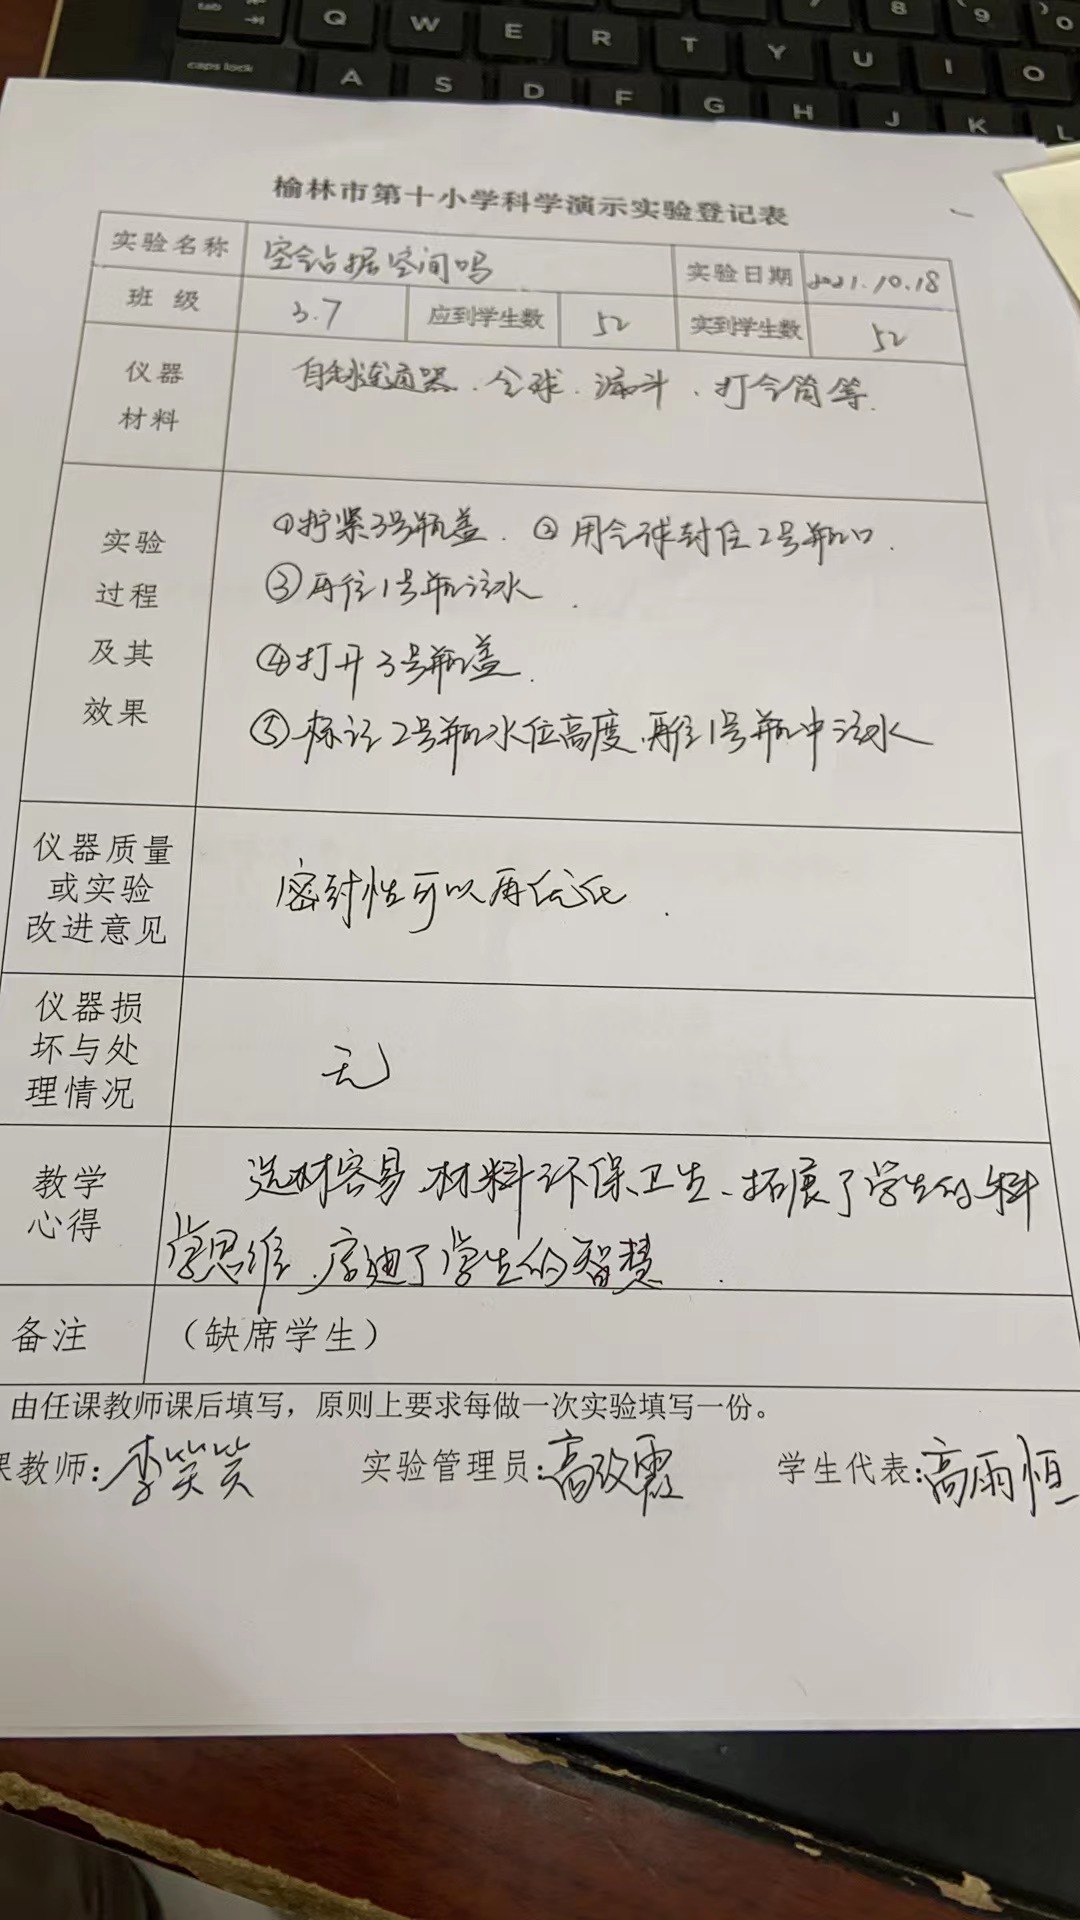 tab Q W E R T Y U I O 8 9
caps lock A S D F G H J K L
榆林市第十小学科学演示实验登记表
实验名称 空气占据空间吗 实验日期 2021.10.18
班级 3.7 应到学生数 52 实到学生数 52
仪器 自制连通器、气球、漏斗、打气筒等.
材料
实验 ①拧紧3号瓶盖. ②用气球封住2号瓶口.
过程 ③再往1号瓶注水.
及其 ④打开3号瓶盖.
效果 ⑤标记2号瓶水位高度,再往1号瓶中注水
仪器质量
或实验 密封性可以再优化.
改进意见
仪器损
坏与处 无
理情况
教学 选材容易,材料环保、卫生、拓展了学生的科
心得 学思维、启迪了学生的智慧.
备注 (缺席学生)
由任课教师课后填写,原则上要求每做一次实验填写一份。
课教师:李笑笑 实验管理员:高改霞 学生代表:高雨恒